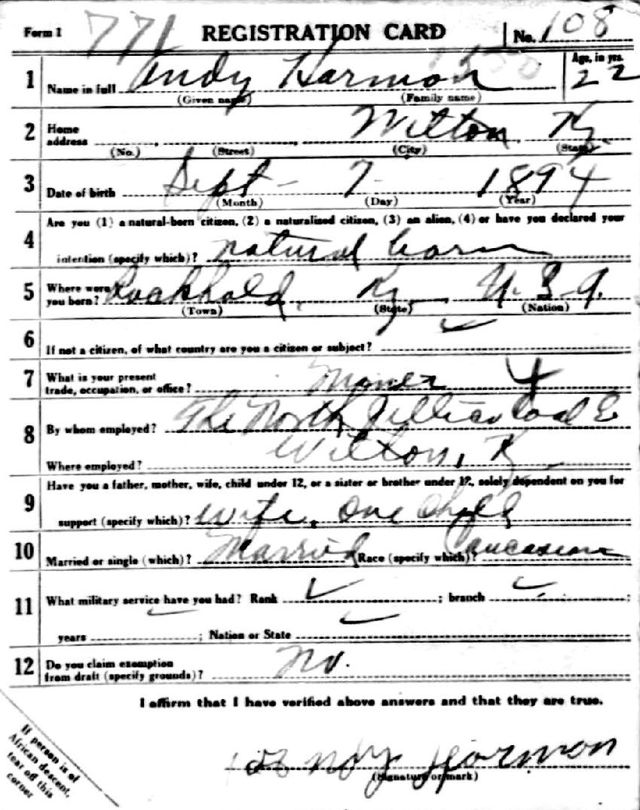 Form 1 771 REGISTRATION CARD No. 108
1 Name in full Andy Harmon Age, in yrs. 22
(Given name) (Family name)
2 Home address Wilton Ky.
(No.) (Street) (City) (State)
3 Date of birth Sept - 7 1894
(Month) (Day) (Year)
4 Are you (1) a natural-born citizen, (2) a naturalized citizen, (3) an alien, (4) or have you declared your
intention (specify which)? natural born
5 Where were you born? Rockhold, Ky. U.S.A.
(Town) (State) (Nation)
6 If not a citizen, of what country are you a citizen or subject?
7 What is your present trade, occupation, or office? Miner 4
8 By whom employed? The North Jellico Coal Co
Where employed? Wilton, Ky
9 Have you a father, mother, wife, child under 12, or a sister or brother under 12, solely dependent on you for
support (specify which)? wife, one child
10 Married or single (which)? Married Race (specify which)? Caucasian
11 What military service have you had? Rank ; branch ;
years ; Nation or State
12 Do you claim exemption from draft (specify grounds)? No.
I affirm that I have verified above answers and that they are true.
If person is of
African descent,
tear off this
corner
Andy Hormon
(Signature or mark)